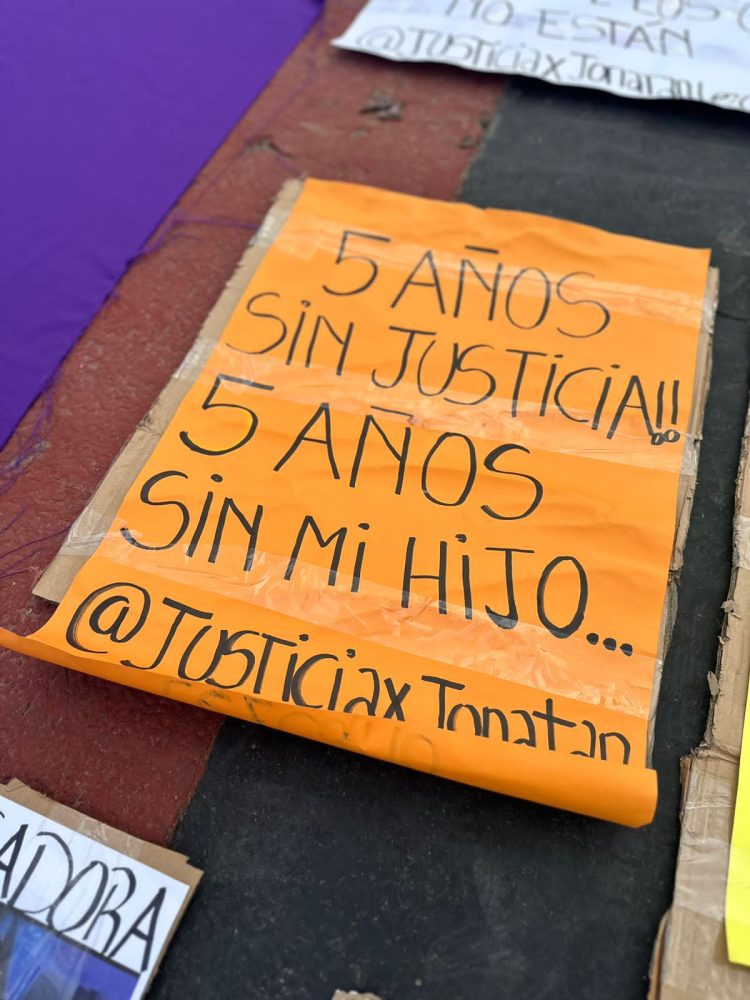 NO ESTÁN
@JUSTiCiaxTonatan
5 AÑOS
SiN JUSTiCiA!!
5 AÑOS
SiN Mi HiJO...
@JUSTiCiax Tonatan
ADORA